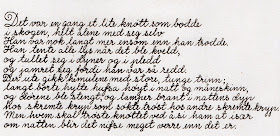 Det var en gang et lite knøtt som bodde
i skogen, helt alene med seg selv
Han var nok langt mer ensom enn han trodde.
Han tente alle lys når det ble kveld,
og tullet seg i dyner og i pledd
og ynkret seg fordi han var så redd.
Der ute gikk himulene med store, tunge trinn;
langt borte hylte hufsa høyt i natt og måneskinn,
og dørene ble stengt, og lamper brant i nattens dryp
hos skremte kryp som søkte trøst hos andre skremte kryp.
Men hvem skal trøste knøttet ved å si hem at især
om natten blir det nifse meget verre enn det er.